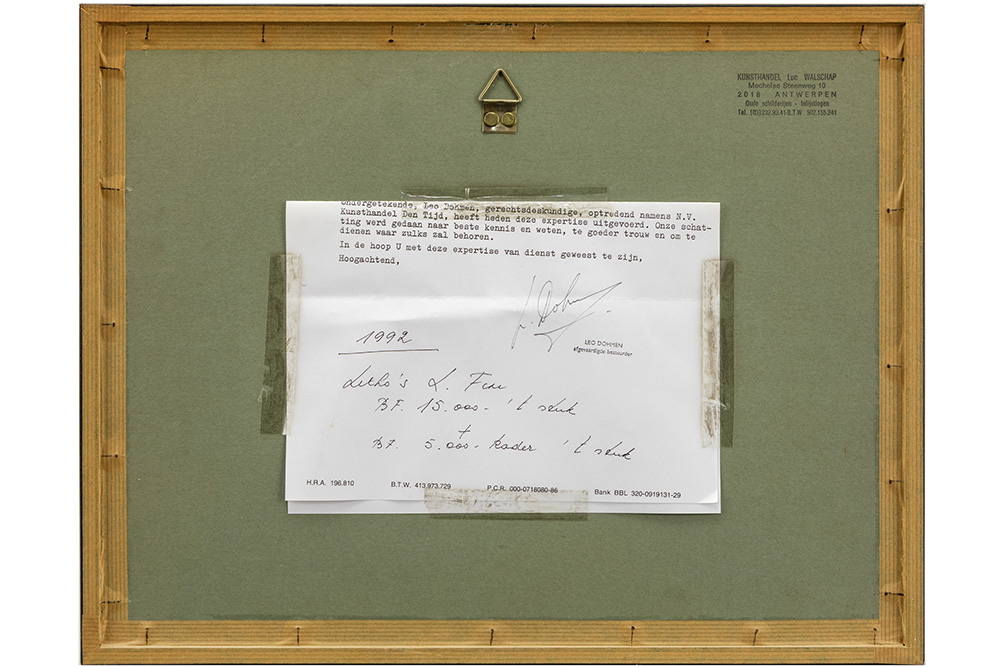 KUNSTHANDEL Luc WALSCHAP
Mechelse Steenweg 10
2018 ANTWERPEN
Oude schilderijen - Inlijstingen
Tel. (03)232.93.41-B.T.W 502.155.241
Ondergetekende, Leo Dohmen, gerechtsdeskundige, optredend namens N.V.
Kunsthandel Den Tijd, heeft heden deze expertise uitgevoerd. Onze schat-
ting werd gedaan naar beste kennis en weten, te goeder trouw en om te
dienen waar zulks zal behoren.
In de hoop U met deze expertise van dienst geweest te zijn,
Hoogachtend,
L. Dohmen
LEO DOHMEN
afgevaardigde bestuurder
1992
Litho's L. Fini
BF. 15.000- 't stuk
+
BF. 5.000- Kader 't stuk
H.R.A. 196.810 B.T.W. 413.973.729 P.C.R. 000-0718080-86 Bank BBL 320-0919131-29